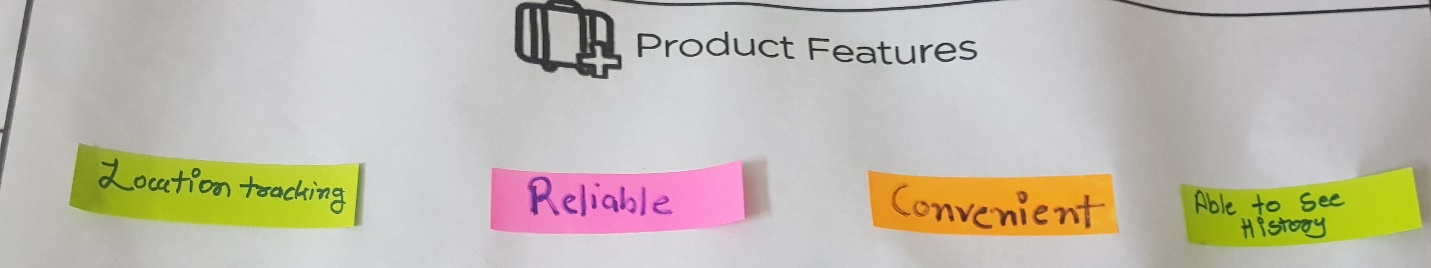 Product Features
Location tracking
Reliable
Convenient
Able to see
History